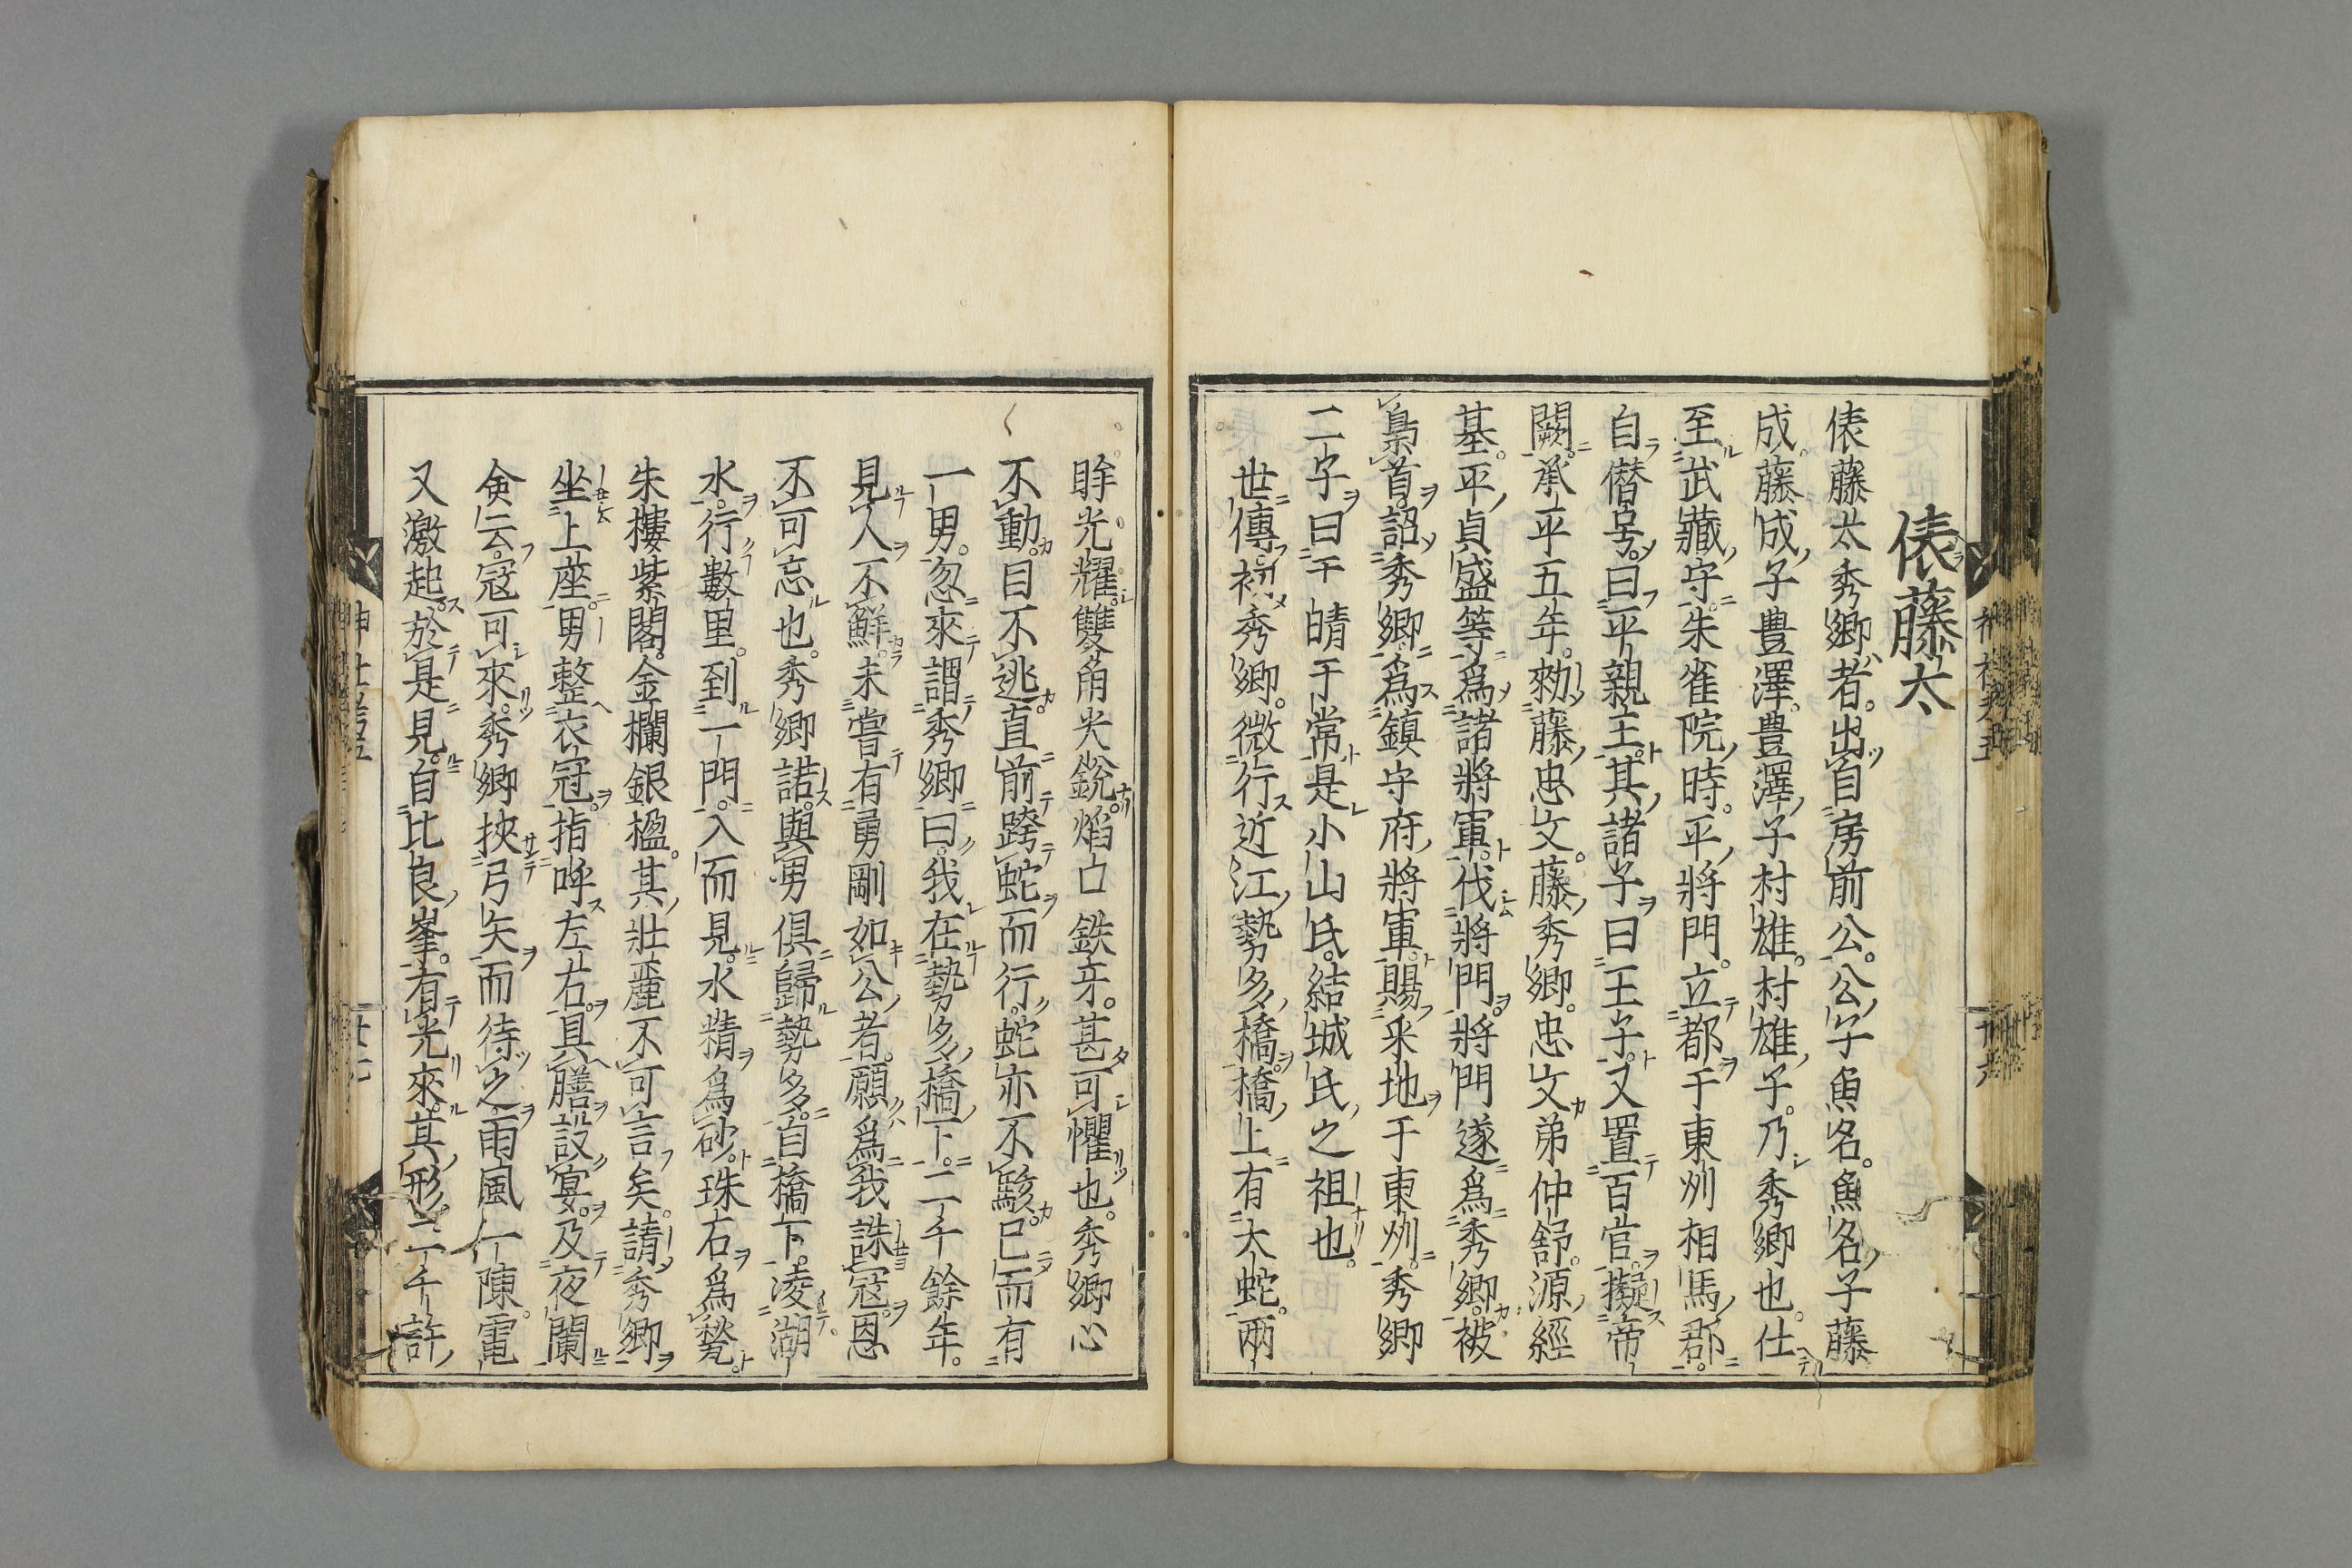 俵藤太
俵藤太秀卿者。出自房前公。公子魚名。魚名子藤
成。藤成子豊澤。豊澤子村雄。村雄子。乃秀卿也。仕
至武藏守。朱雀院時。平將門。立都于東州相馬郡。
自僣号。曰平親王。其諸子曰王子。又置百官。擬帝
闕。承平五年。勑藤忠文。藤秀卿。忠文弟仲舒。源經
基。平貞盛等。爲諸將軍。伐將門。將門遂爲秀卿。被
梟首。詔秀卿。爲鎮守府將軍。賜釆地于東州。秀卿
二子曰干晴干常。是小山氏。結城氏之祖也。
世傳。初秀卿。微行近江勢多橋。橋上有大蛇。兩
眸光耀。雙角尖銳。焰口鉄牙。甚可懼也。秀卿心
不動。目不逃。直前跨蛇而行。蛇亦不駭。已而有
一男。忽來謂秀卿曰。我在勢多橋下。二千餘年。
見人不鮮。未嘗有勇剛如公者。願爲我誅冦。恩
不可忘也。秀卿諾。與男俱歸勢多。自橋下。凌湖
水。行數里。到一門。入而見。水精爲砂。珠石爲甃。
朱樓紫閣。金欄銀楹。其壯麗不可言矣。請秀卿
坐上座。男整衣冠。指呼左右。具膳設宴。及夜闌
僉云。冦可來。秀卿挾弓矢而待之。雨風一陳。電
又激起。於是見。自比良峯。有光來。其形。二千許